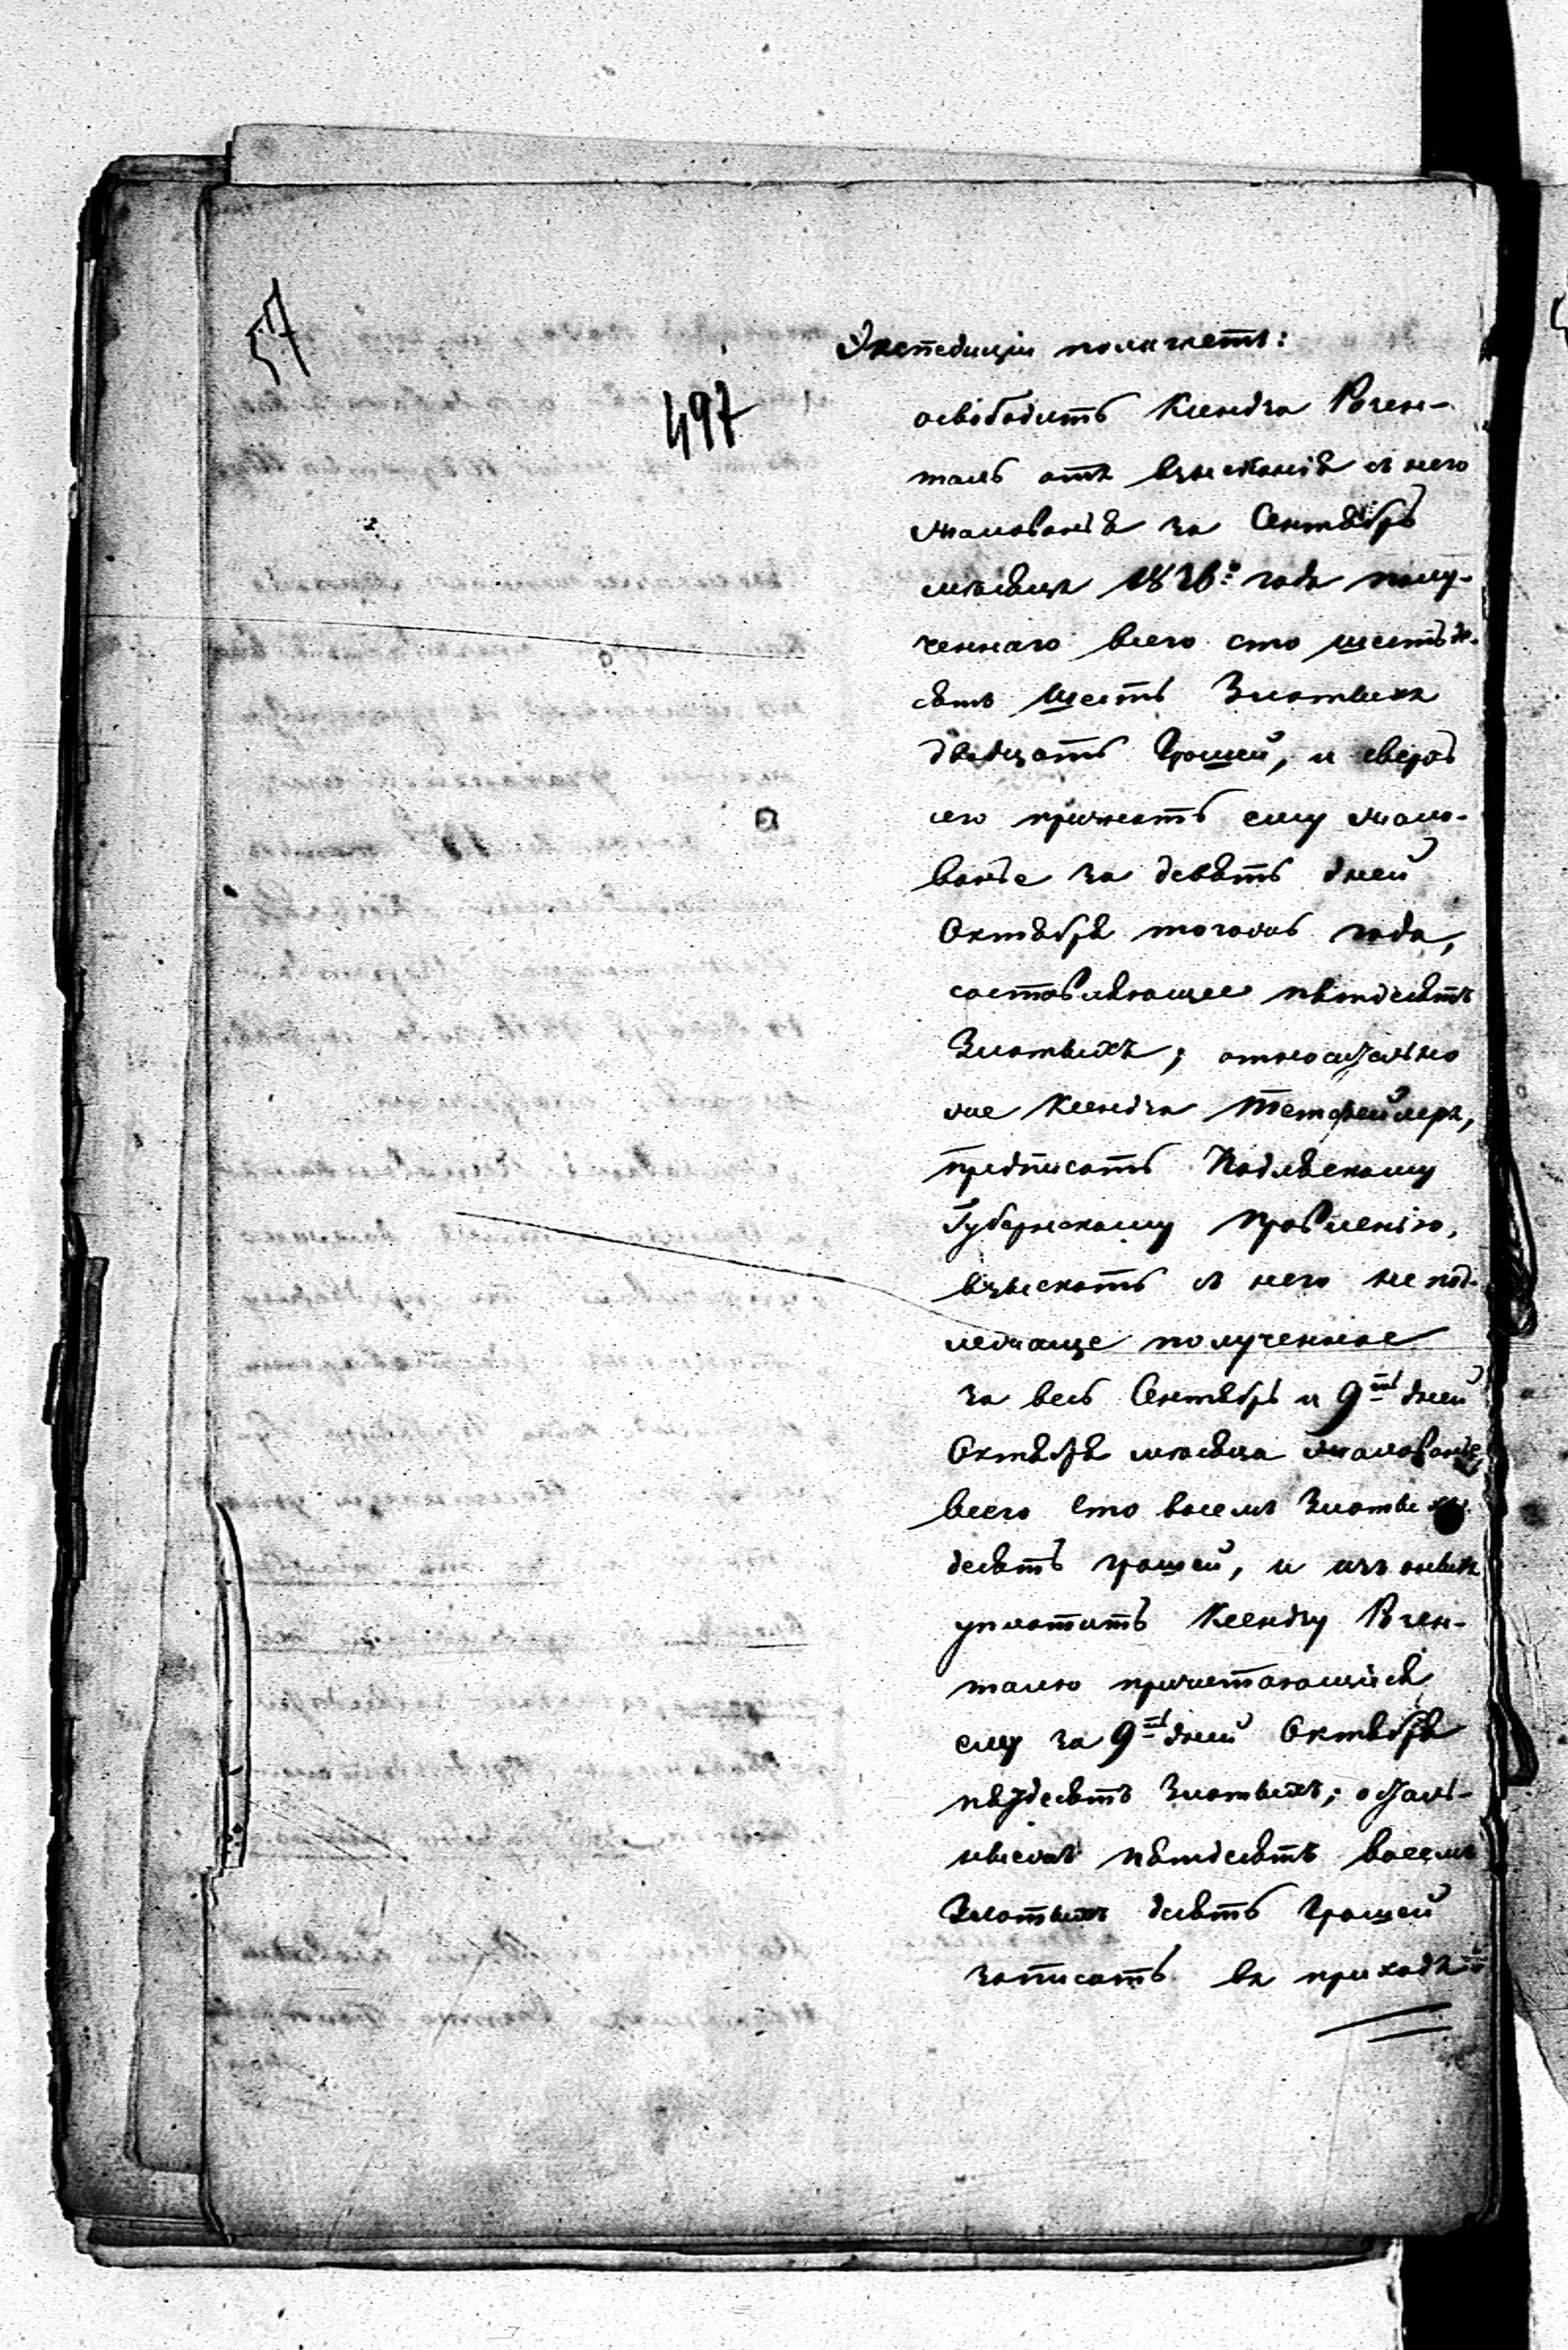 57
497
Экспедиція полагаетъ:
освободить Ксендза Розен-
таль отъ взысканія съ него
жалованія за Сентябрь
мѣсяцъ 1836го года полу-
ченнаго всего сто шестьде-
сятъ шесть Злотыхъ
двадцать Грошей, и сверхъ
сего причесть ему жало-
ванье за девять дней
Октября тогожъ года,
составляющее пятдесятъ
Злотыхъ; относительно
же Ксендза
предписать Подляскому
Губернскому Правленію,
взыскать съ него не под-
лежаще полученное
за весь Сентябрь и 9ть дней
Октября мѣсяца жалованье,
всего сто восемъ Злотыхъ
десять грошей, и изъ оныхъ
уплатить Ксендзу Розен-
талю причитающіяся
ему за 9ть дней Октября
пятдесятъ Злотыхъ; осталь-
ныежъ пятдесятъ восемъ
Злотыхъ десять Грошей
записать въ приходъ